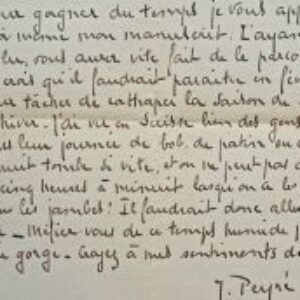 gagner du temps je vous app
à même mon manuscrit. L'ayan
lu, vous aurez vite fait de le parco
crois qu'il faudrait paraître en fé
tâcher de rattraper la saison de
hiver. J'ai vu en Suisse bien des gens
leur journée de bob, de patin ou
nuit tombe si vite, et on ne peut pas d
cinq heures à minuit lorsqu'on a les
les jambes! Il faudrait donc all
Méfiez-vous de ce temps humide
gorge. Croyez à mes sentiments d
J. Peyré